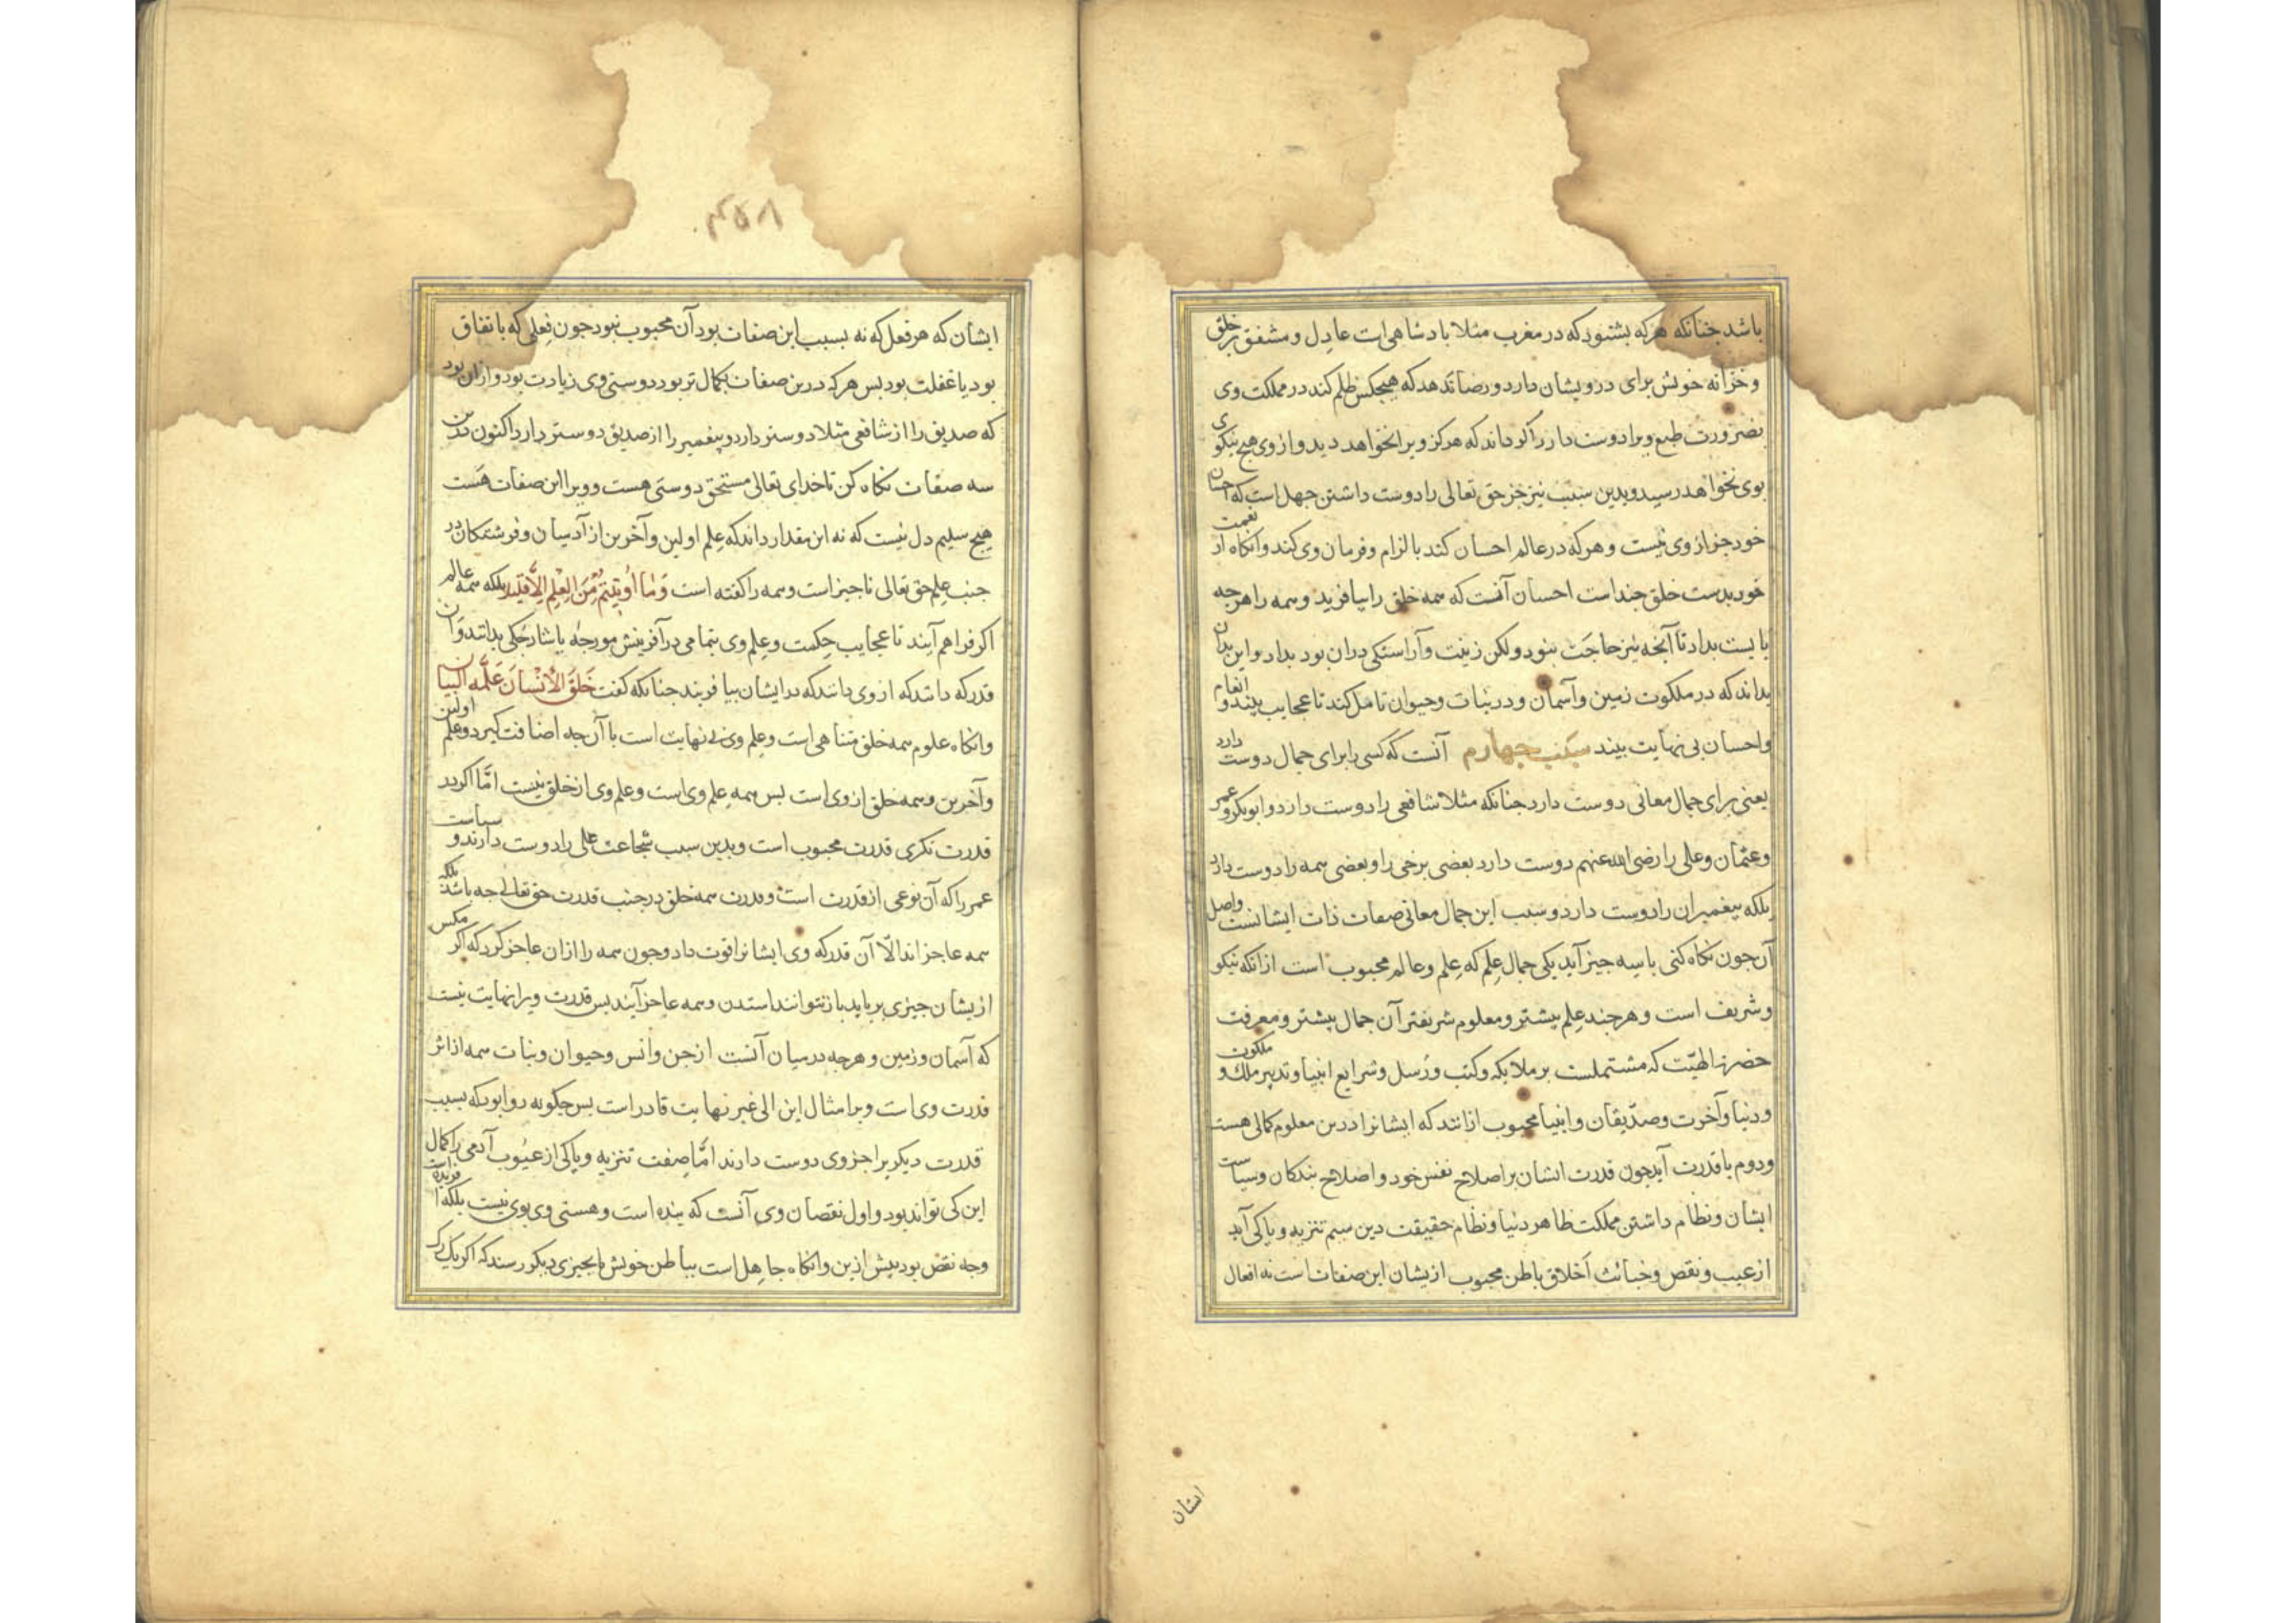 باشد جنانکه هرکه بشنود که در مغرب مثلا بادشاهی است عادل و مشفق بر خلق
وخزانه خویش برای درویشان دارد و رضا ندهد که هیجکس ظلم کند در مملکت وی
بضرورت طبع ویرا دوست دارد اکر داند که هرکز ویرا نخواهد دید و از وی هیج نیکوی
بوی نخواهد رسید و بدین سبب نیز جز حق تعالی را دوست داشتن جهل است که احسان
خود جز از وی نیست و هرکه در عالم احسان کند بالزام و فرمان وی کند و انکاه از نعمت
خود بدست خلق جند است احسان آنست که همه خلق را بیافرید و همه را هرجه
بایست بداد تا آنجه نیز حاجت نبود ولکن زینت و آراستکی در ان بود بداد و این بدان
بداند که در ملکوت زمین و آسمان و در نبات و حیوان تامل کند تا عجایب بیند و انعام
و احسان بی نهایت بیند سبب چهارم آنست که کسی را برای جمال دوست دارد
یعنی برای جمال معانی دوست دارد جنانکه مثلا شافعی را دوست دارد و ابوبکر و عمر
و عثمان و علی را رضی الله عنهم دوست دارد بعضی برخی را و بعضی همه را دوست دارد
بلکه بیغمبران را دوست دارد و سبب این جمال معانی صفات ذات ایشانست و اصل
آن جون نکاه کنی با سه جیز آید یکی جمال علم که علم و عالم محبوب است از انکه نیکو
و شریف است و هرجند علم بیشتر و معلوم شریفتر آن جمال بیشتر و معرفت
حضرت الهیّت که مشتملست بر ملایکه و کتب و رُسل و شرایع انبیا و تدبیر ملک و ملکوت
و دنیا و آخرت و صدّیقان و انبیا محبوب ازانند که ایشانرا درین معلوم کمالی هست
و دوم با قدرت آید جون قدرت ایشان بر اصلاح نفس خود و اصلاح بندکان و سیاست
ایشان و نظام داشتن مملکت ظاهر دنیا و نظام حقیقت دین سیم تنزیه و باکی آید
از عیب و نقص و خبائث اخلاق باطن محبوب ازیشان این صفات است نه افعال
ایشان
۴۵۸
ایشان که هر فعل که نه بسبب این صفات بود آن محبوب نبود جون فعلی که باتفاق
بود یا غفلت بود بس هرکه درین صفات بکمال تر بود دوستی وی زیادت بود و ازان بود
که صدیق را از شافعی مثلا دوستر دارد و پیغمبر را از صدیق دوستر دارد اکنون درین
سه صفات نکاه کن تا خدای تعالی مستحق دوستی هست و ویرا این صفات هست
هیج سلیم دل نیست که نه این مقدار داند که علم اولین و آخرین از آدمیان و فرشتکان در
جنب علم حق تعالی ناجیز است و همه را کفته است وَمَا اُوتِیتُم مِّنَ الْعِلْمِ اِلّاَ قَلِیلا بلکه همه عالم
اکر فراهم آیند تا عجایب حکمت و علم وی بتمامی در آفرینش مورجه یا شارجکی بدانند و آن
قدر که دانند که از وی دانند که در ایشان بیافریند جنانکه کفت خَلَقَ الْاِنْسَانَ عَلَّمَهُ الْبَیَان
وانکاه علوم همه خلق متناهی است و علم وی بی نهایت است با آن جه اضافت کیرد و علم اولین
و آخرین و همه خلق از وی است بس همه علم وی است و علم وی از خلق نیست امّا اکر در
قدرت نکری قدرت محبوب است و بدین سبب شجاعت علی را دوست دارند و سیاست
عمر را که آن نوعی از قدرت است و قدرت همه خلق در جنب قدرت حق تعالی جه باشد بلکه
همه عاجز اند الّا آن قدر که وی ایشانرا قوت داد و جون همه را ازان عاجز کرد که اکر مکس
ازیشان جیزی برباید باز نتوانند استدن و همه عاجز آیند بس قدرت ویرا نهایت نیست
که آسمان و زمین و هرجه در میان آنست از جن و انس و حیوان و نبات همه از اثر
قدرت وی است و بر امثال این الی غیر نهایت قادر است بس جکونه روا بود که بسبب
قدرت دیکریرا جز وی دوست دارند امّا صفت تنزیه و باکی از عیوب آدمی را کمال
این کی تواند بود و اول نقصان وی آنست که بنده است و هستی وی بوی نیست بلکه آفریده است
وجه نقص بود بیش ازین وانکاه جاهل است بباطن خویش تا بجیزی دیکر رسد که اکر یک رک